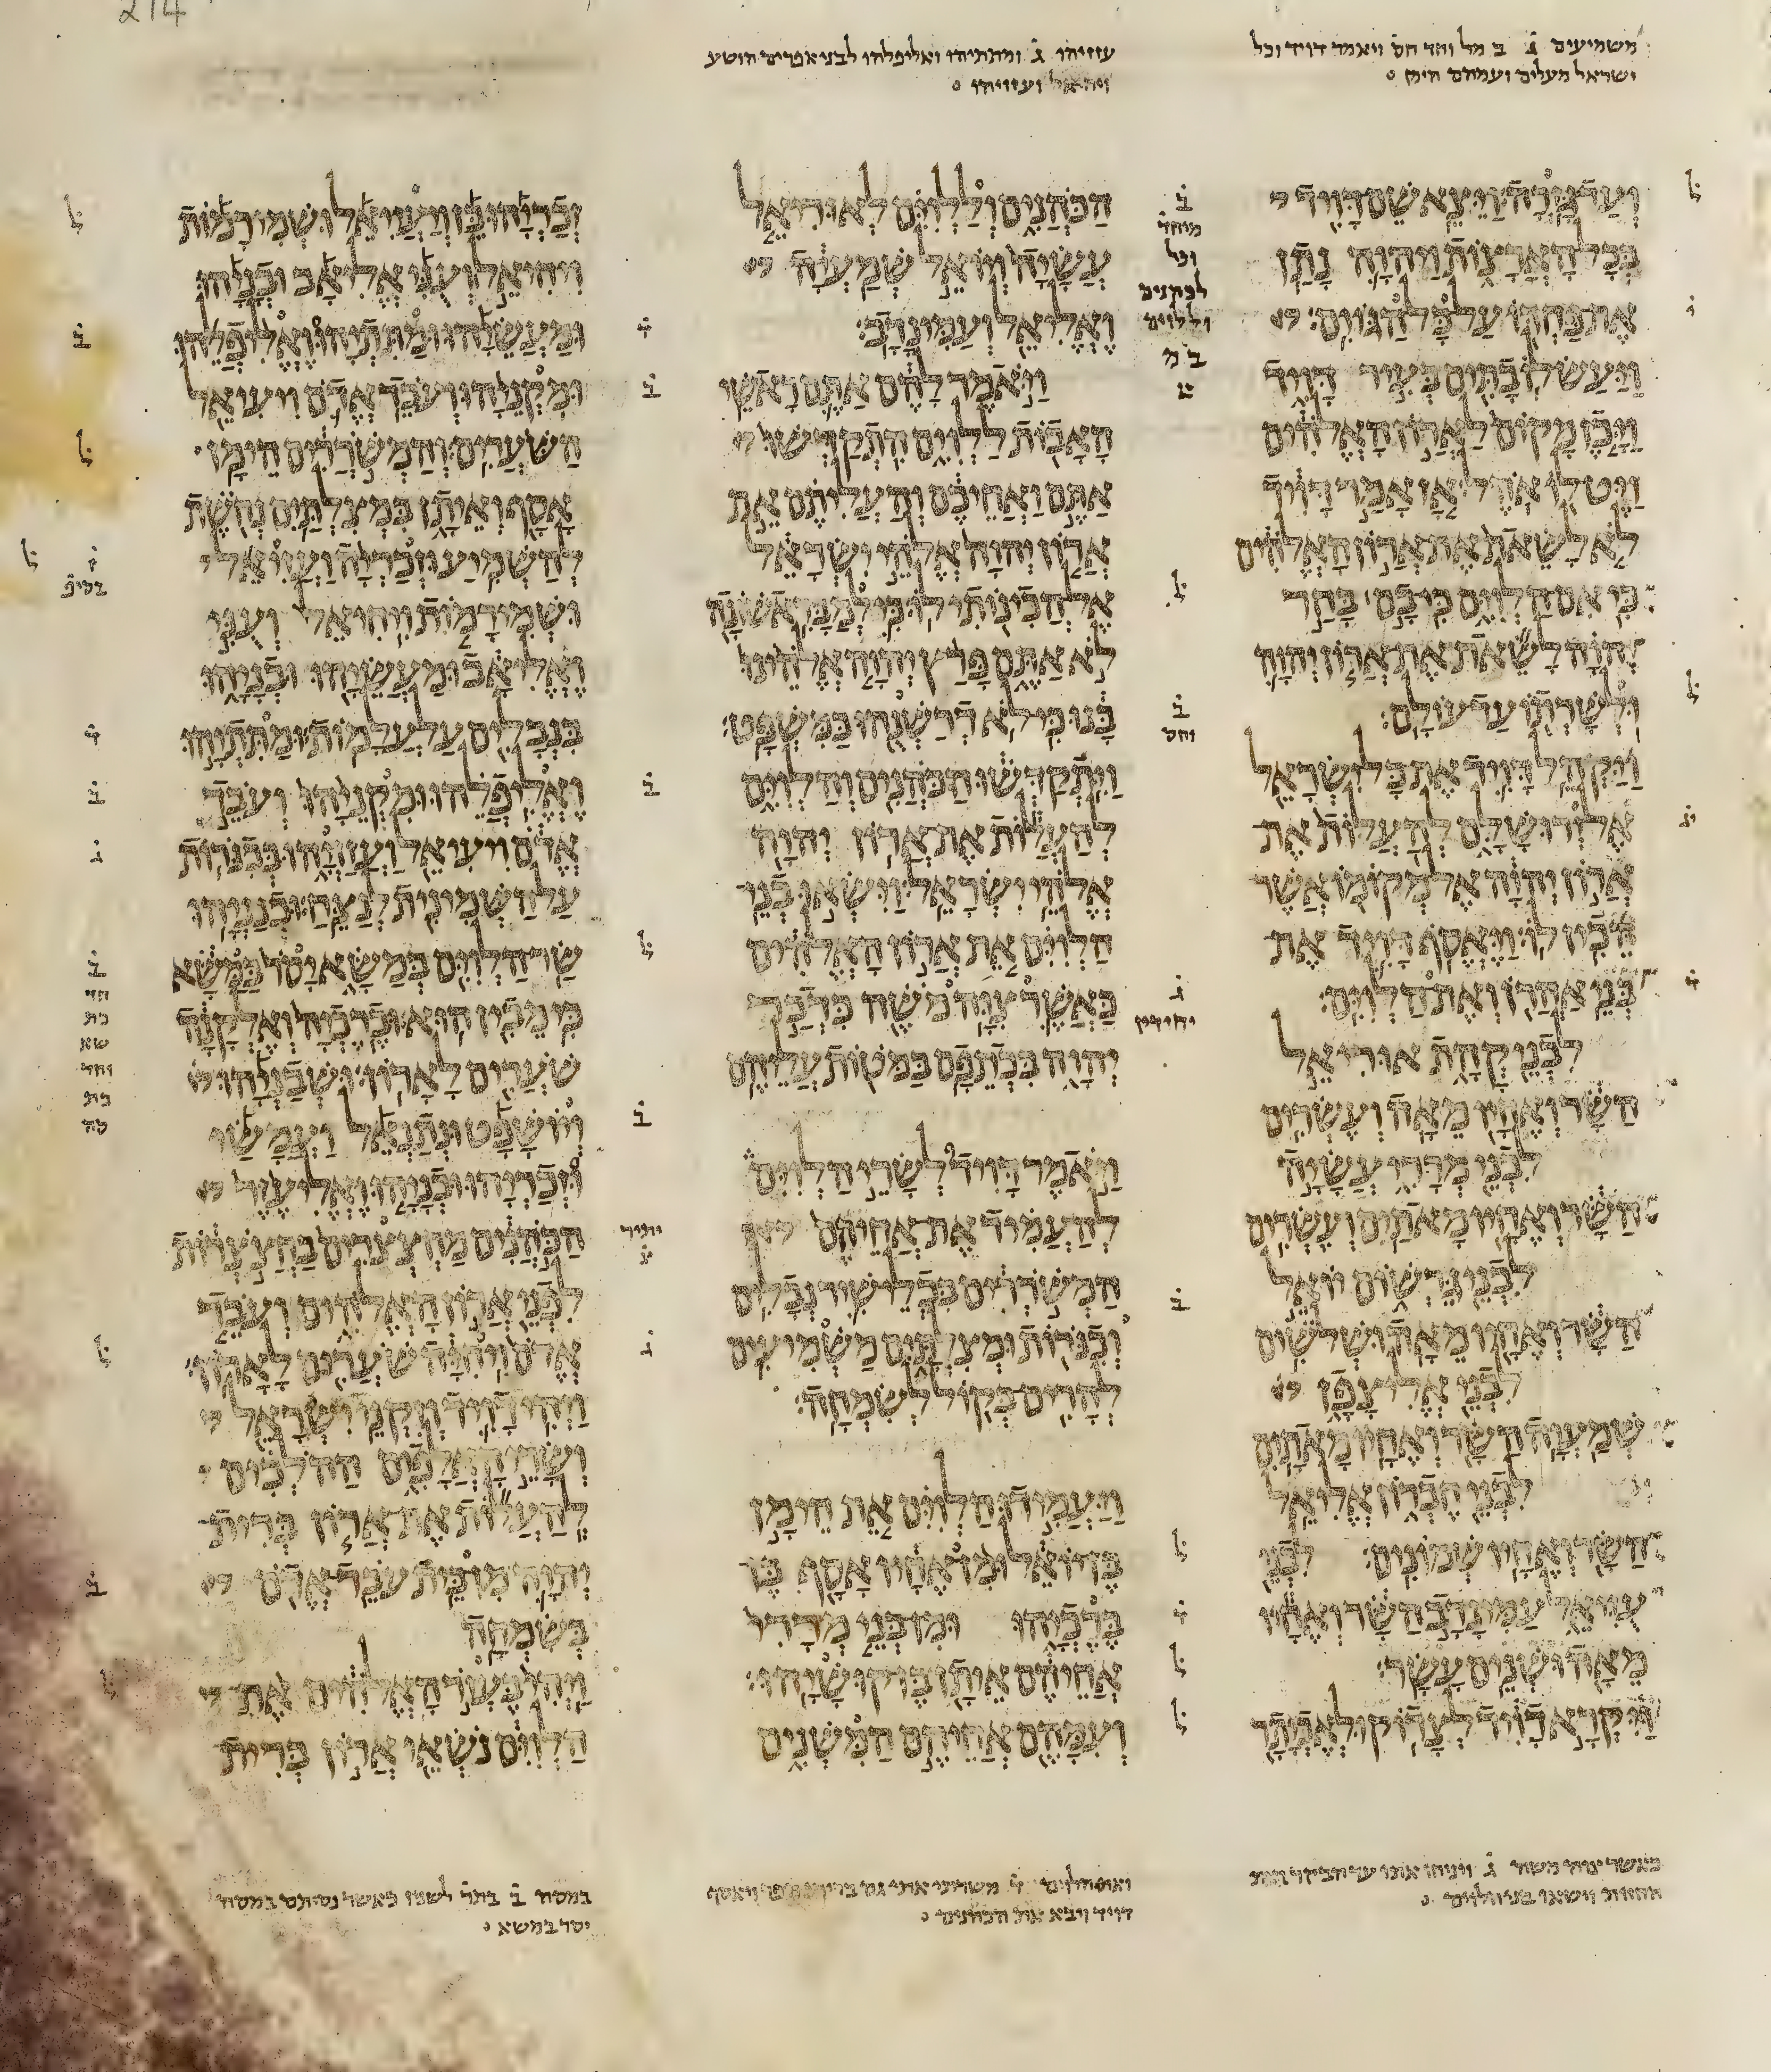 214
משמיעים ג ב מל וחד חס ויאמר דויד וכל
ישראל מעלים ועמהם הימן
ועד גזרה ויצא שם דויד
בכל הארצות ויהוה נתן
את פחדו על כל הגוים
ויעש לו בתים בעיר דויד
ויכן מקום לארון האלהים
ויט לו אהל אז אמר דויד
לא לשאת את ארון האלהים
כי אם הלוים כי בם בחר
יהוה לשאת את ארון יהוה
ולשרתו עד עולם
ויקהל דויד את כל ישראל
אל ירושלם להעלות את
ארון יהוה אל מקומו אשר
הכין לו ויאסף דויד את
בני אהרן ואת הלוים
לבני קהת אוריאל
השר ואחיו מאה ועשרים
לבני מררי עשיה
השר ואחיו מאתים ועשרים
לבני גרשום יואל
השר ואחיו מאה ושלשים
לבני אליצפן
שמעיה השר ואחיו מאתים
לבני חברון אליאל
השר ואחיו שמונים לבני
עזיאל עמינדב השר ואחיו
מאה ושנים עשר
ויקרא דויד לצדוק ולאביתר
כאשר צוה משה ג ויניחו אתו עד הבקר
וישאו בני הלוים
עזזיהו ג ומתתיהו ואליפלהו לבני אפרים הושע
ויחיאל ועזזיהו
הכהנים וללוים לאוריאל
עשיה ויואל שמעיה
ואליאל ועמינדב
ויאמר להם אתם ראשי
האבות ללוים התקדשו
אתם ואחיכם והעליתם את
ארון יהוה אלהי ישראל
אל הכינותי לו כי למבראשונה
לא אתם פרץ יהוה אלהינו
בנו כי לא דרשנהו כמשפט
ויתקדשו הכהנים והלוים
להעלות את ארון יהוה
אלהי ישראל וישאו בני
הלוים את ארון האלהים
כאשר צוה משה כדבר
יהוה בכתפם במטות עליהם
ויאמר דויד לשרי הלוים
להעמיד את אחיהם
המשררים בכלי שיר נבלים
וכנרות ומצלתים משמיעים
להרים בקול לשמחה
ויעמידו הלוים את הימן
בן יואל ומן אחיו אסף בן
ברכיהו ומן בני מררי
אחיהם איתן בן קושיהו
ועמהם אחיהם המשנים
ואת הלוים ד משרתי אתי גם ויאסף
דויד ויבא את הכהנים
זכריהו בן ויעזיאל ושמירמות
ויחיאל ועני אליאב ובניהו
ומעשיהו ומתתיהו ואליפלהו
ומקניהו ועבד אדם ויעיאל
השערים והמשררים הימן
אסף ואיתן במצלתים נחשת
להשמיע וזכריה ועזיאל
ושמירמות ויחיאל ועני
ואליאב ומעשיהו ובניהו
בנבלים על עלמות ומתתיהו
ואליפלהו ומקניהו ועבד
אדם ויעיאל ועזזיהו בכנרות
על השמינית לנצח וכנניהו
שר הלוים במשא יסר במשא
כי מבין הוא וברכיה ואלקנה
שערים לארון ושבניהו
ויושפט ונתנאל ועמשי
וזכריהו ובניהו ואליעזר
הכהנים מחצצרים בחצצרות
לפני ארון האלהים ועבד
אדם ויחיה שערים לארון
ויהי דויד וזקני ישראל
ושרי האלפים ההלכים
להעלות את ארון ברית
יהוה מן בית עבד אדם
בשמחה
ויהי בעזר האלהים את
הלוים נשאי ארון ברית
במסה ב בתר לשנו כאשר נסיתם במסה
יסר במשא